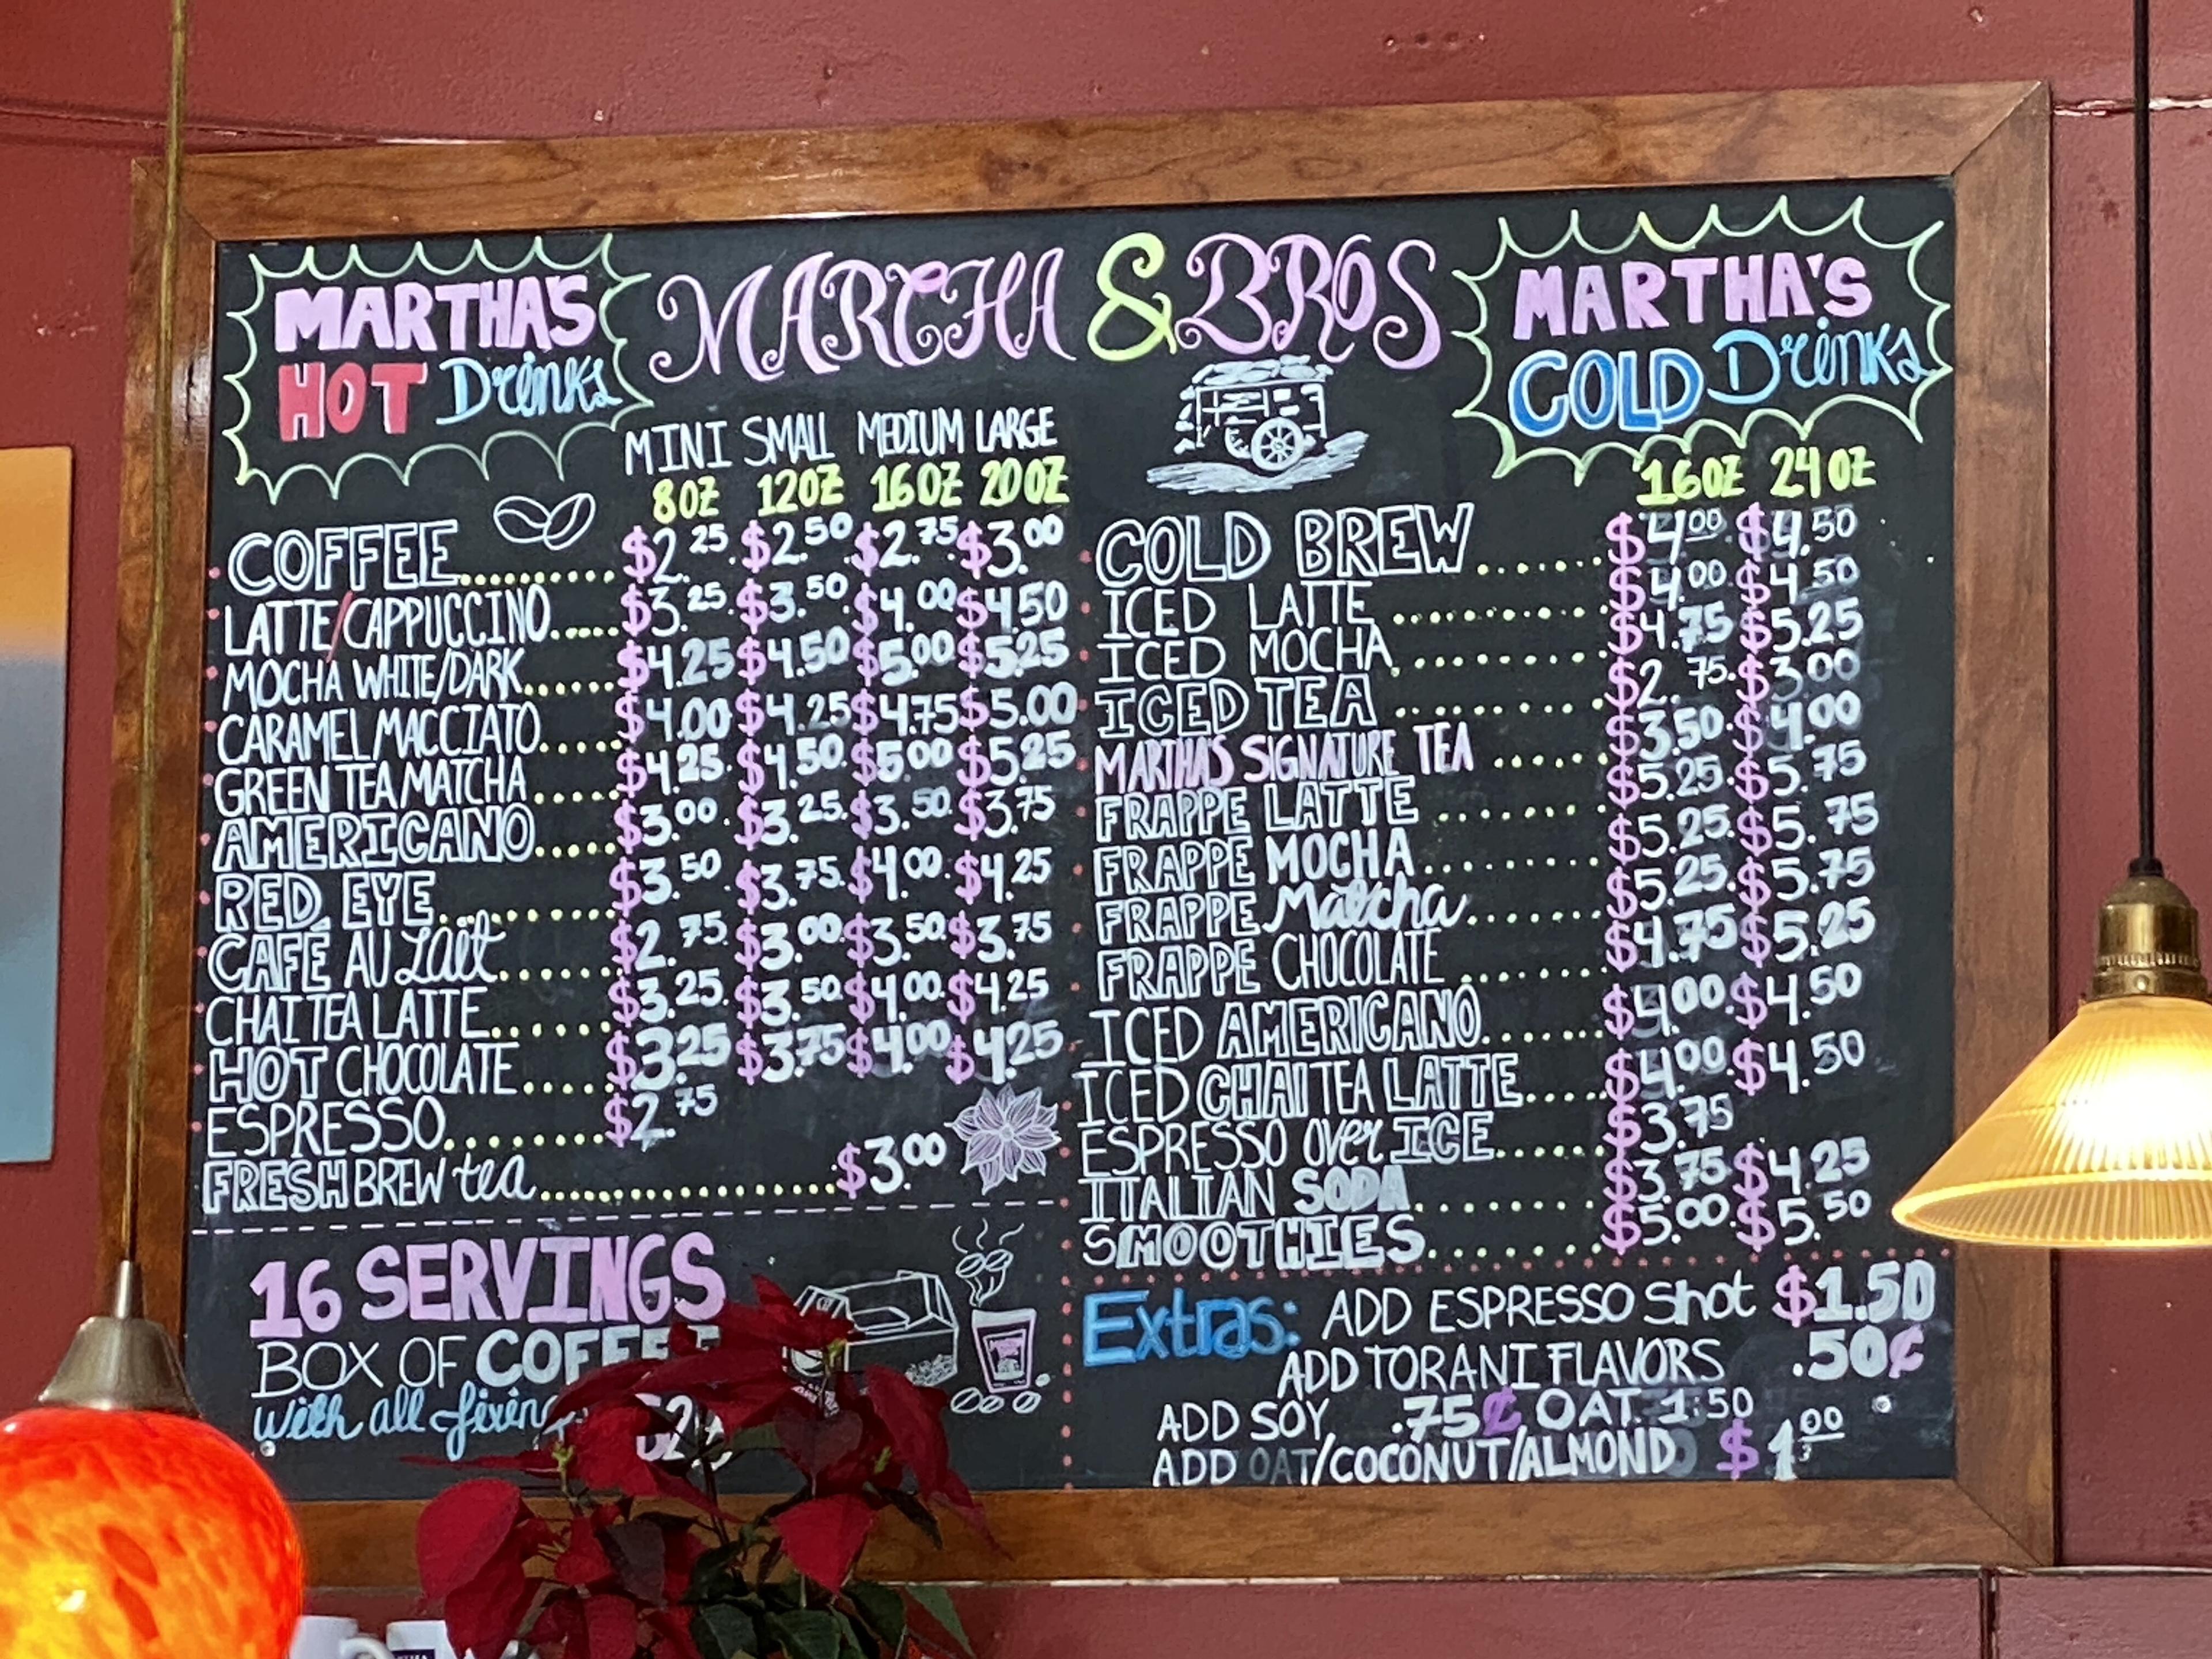 MARTHA & BROS
MARTHA'S
HOT Drinks
MINI SMALL MEDIUM LARGE
8OZ 12OZ 16OZ 20OZ
COFFEE.......... $2.25. $2.50 $2.75 $3.00
LATTE/CAPPUCCINO..... $3.25. $3.50. $4.00 $4.50
MOCHA WHITE/DARK...... $4.25 $4.50 $5.00 $5.25
CARAMEL MACCIATO..... $4.00 $4.25 $4.75 $5.00
GREEN TEA MATCHA..... $4.25. $4.50 $5.00 $5.25
AMERICANO..... $3.00. $3.25. $3.50. $3.75
RED EYE.......... $3.50 $3.75. $4.00. $4.25
CAFÉ AU Lait...... $2.75. $3.00. $3.50. $3.75
CHAI TEA LATTE...... $3.25. $3.50 $4.00. $4.25
HOT CHOCOLATE..... $3.25 $3.75 $4.00 $4.25
ESPRESSO........ $2.75
FRESH BREW tea............... $3.00
16 SERVINGS
BOX OF COFFEE
with all
MARTHA'S
COLD Drinks
16OZ 24OZ
COLD BREW...... $4.00. $4.50
ICED LATTE.......... $4.00 $4.50
ICED MOCHA.......... $4.75 $5.25
ICED TEA.......... $2.75. $3.00
MARTHA'S SIGNATURE TEA...... $3.50. $4.00
FRAPPE LATTE........ $5.25. $5.75
FRAPPE MOCHA......... $5.25. $5.75
FRAPPE Matcha....... $5.25. $5.75
FRAPPE CHOCOLATE....... $4.75 $5.25
ICED AMERICANO...... $4.00. $4.50
ICED CHAI TEA LATTE.... $4.00. $4.50
ESPRESSO over ICE..... $3.75
ITALIAN SODA......... $3.75 $4.25
SMOOTHIES........ $5.00. $5.50
Extras: ADD ESPRESSO Shot $1.50
ADD TORANI FLAVORS .50¢
ADD SOY .75¢ OAT 1.50
ADD OAT/COCONUT/ALMOND $1.00